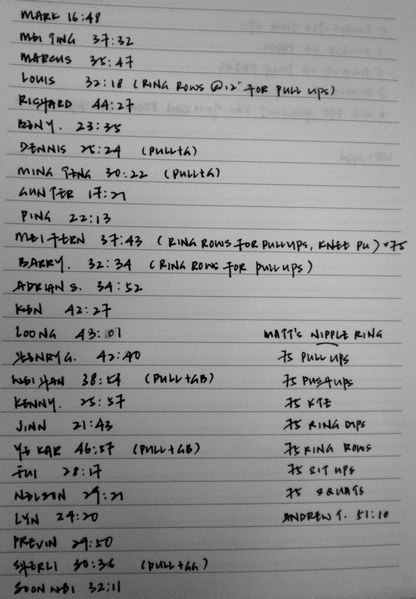 MARK 16:48
MEI TING 37:32
MARCUS 35:47
LOUIS 32:18 (RING ROWS @12" FOR PULL UPS)
RICHARD 44:27
BENY. 23:35
DENNIS 25:24 (PULL+G)
MING TENG 30:22 (PULL+G)
GUNTER 17:21
PING 22:13
MEI FERN 37:43 (RING ROWS FOR PULLUPS, KNEE PU) *75
BARRY. 32:34 (RING ROWS FOR PULLUPS)
ADRIAN S. 34:52
KEN 42:27
LOONG 43:01
HENRY G. 42:40
WEI HAN 38:54 (PULL+GB)
KENNY. 25:57
JINN 21:43
YE KAR 46:57 (PULL+GB)
JUI 28:17
NELSON 29:21
LYN 24:20
PREVIN 29:50
SHERLI 30:36 (PULL+GG)
SOON WEI 32:11
MATT'S NIPPLE RING
75 PULL UPS
75 PUSHUPS
75 KTE
75 RING DIPS
75 RING ROWS
75 SIT UPS
75 SQUATS
ANDREW T. 51:10